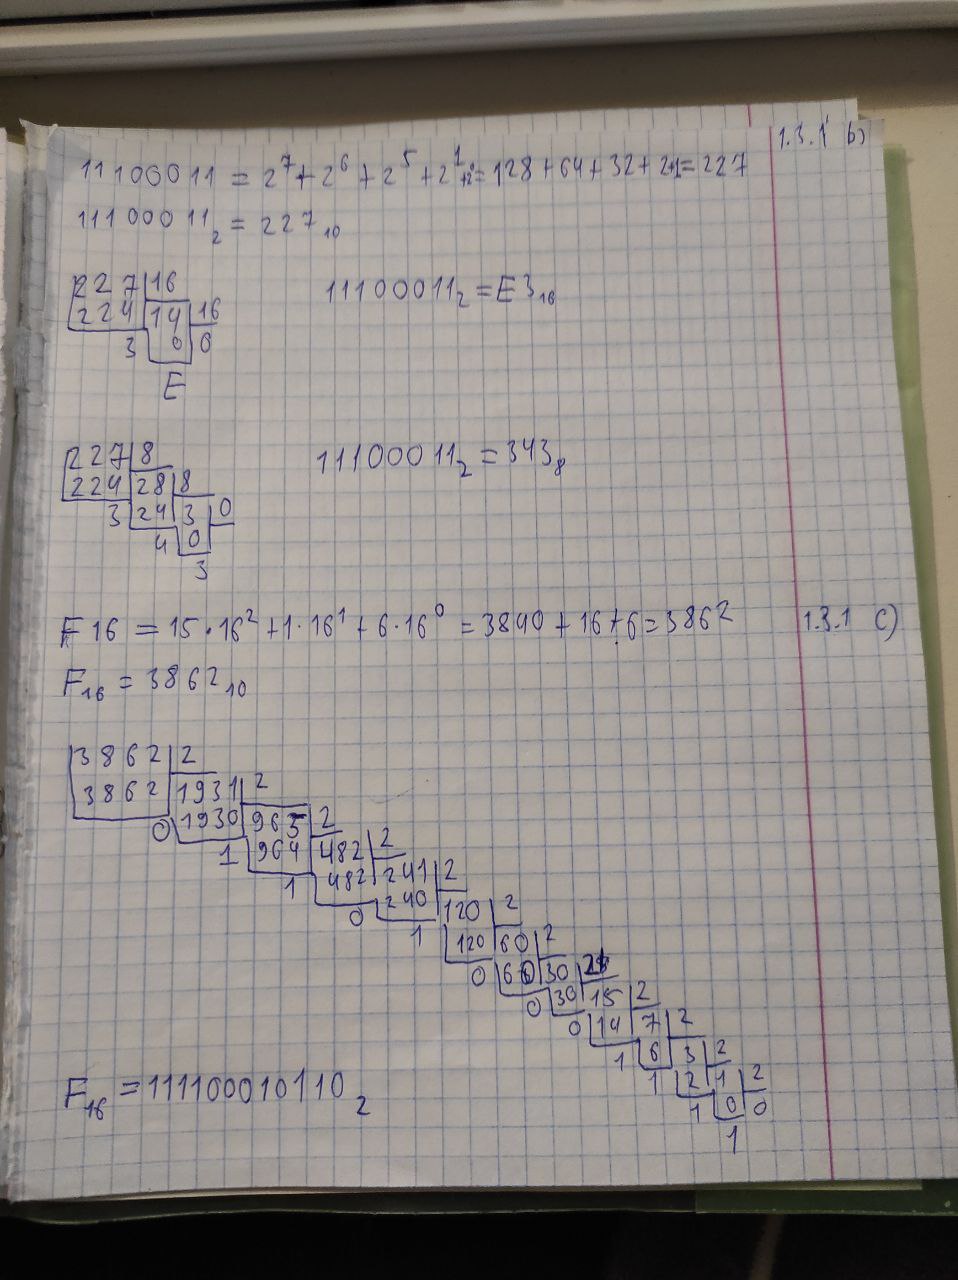 1.3.1 b)
11100011 = 2⁷+2⁶+2⁵+2¹+2⁰=128+64+32+2+1=227
11100011₂ = 227₁₀
227 16
224 14 16
3 0 0
E
11100011₂ = E3₁₆
227 8
224 28 8
3 24 3 0
4 0
3
11100011₂ = 343₈
F16 = 15·16²+1·16¹+6·16⁰ = 3840+16+6=3862
1.3.1 c)
F₁₆ = 3862₁₀
3862 2
3862 1931 2
0 1930 965 2
1 964 482 2
1 482 241 2
0 240 120 2
1 120 60 2
0 60 30 2
0 30 15 2
0 14 7 2
1 6 3 2
1 2 1 2
1 0 0
1
F₁₆ = 111100010110₂